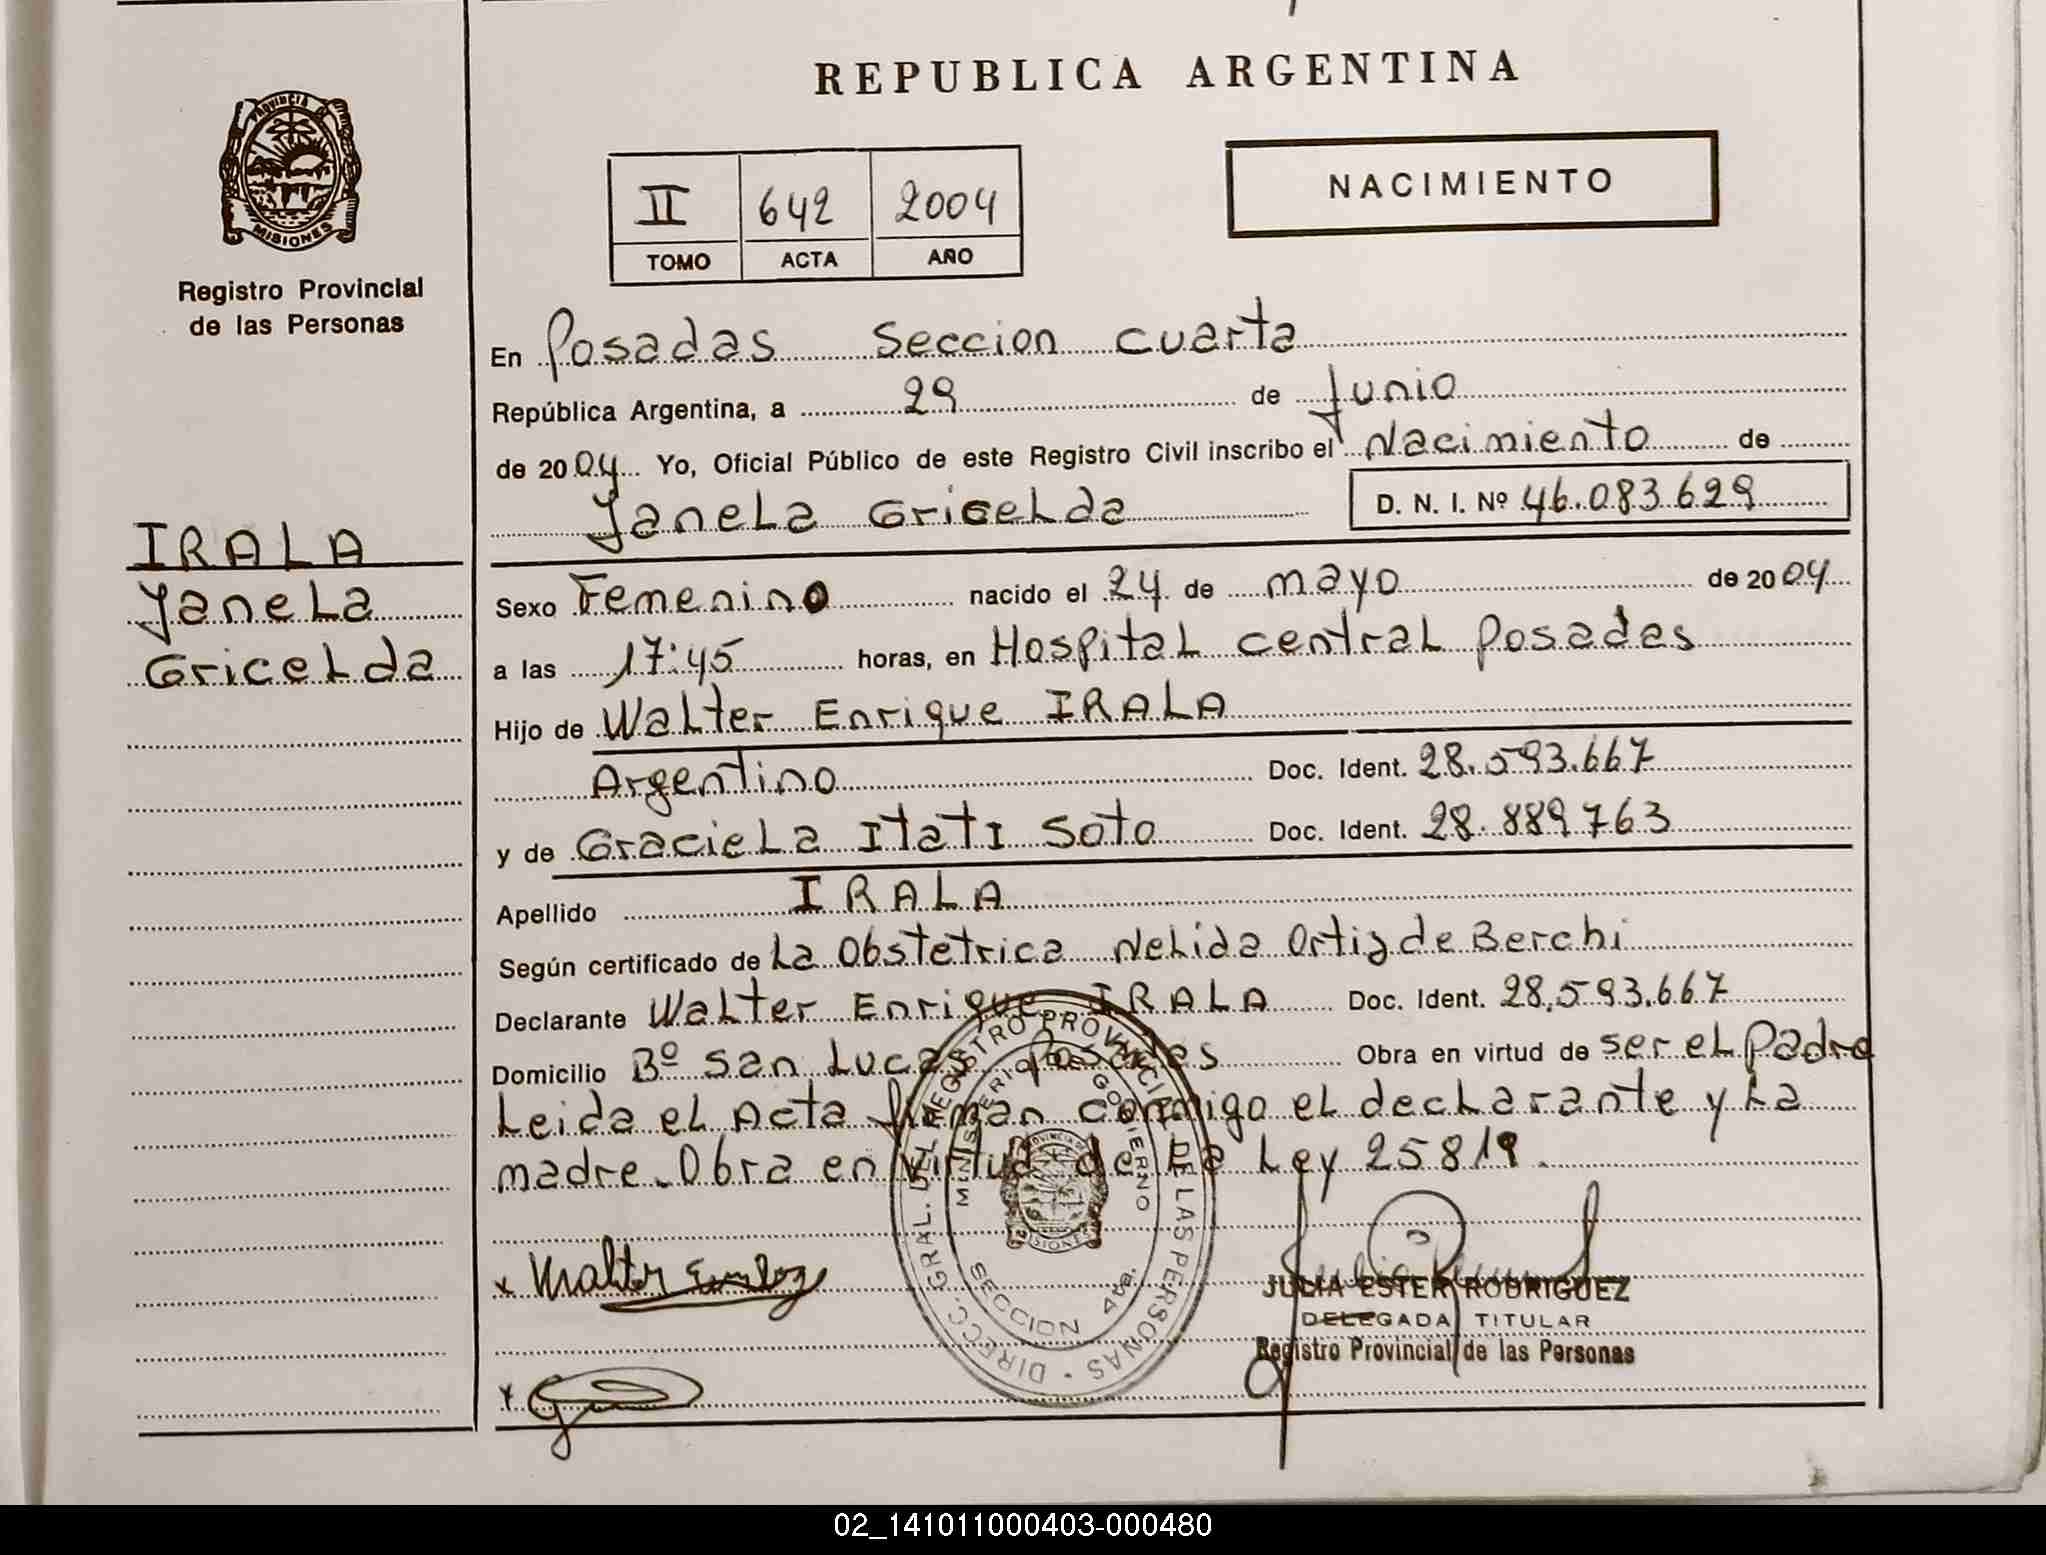 REPUBLICA ARGENTINA
PROVINCIA DE
MISIONES
Registro Provincial
de las Personas
II 642 2004
TOMO ACTA AÑO
NACIMIENTO
IRALA
Yanela
Gricelda
En Posadas Seccion cuarta
República Argentina, a 29 de Junio
de 2004 Yo, Oficial Público de este Registro Civil inscribo el Nacimiento de
Yanela Gricelda D. N. I. Nº 46.083.629
Sexo Femenino nacido el 24 de mayo de 2004
a las 17:45 horas, en Hospital central Posadas
Hijo de Walter Enrique IRALA
Argentino Doc. Ident. 28.593.667
y de Graciela Itati Soto Doc. Ident. 28.889763
Apellido IRALA
Según certificado de La Obstetrica Nelida Ortiz de Berchi
Declarante Walter Enrique IRALA Doc. Ident. 28.593.667
Domicilio Bº San Lucas Posadas Obra en virtud de ser el Padre
Leida el Acta firman conmigo el declarante y La
madre. Obra en virtud de La Ley 25819.
DIRECC. GRAL. DEL REGISTRO PROVINCIAL DE LAS PERSONAS
MINISTERIO DE GOBIERNO
SECCION 4ta.
JULIA ESTER RODRIGUEZ
DELEGADA TITULAR
Registro Provincial de las Personas
02_141011000403-000480